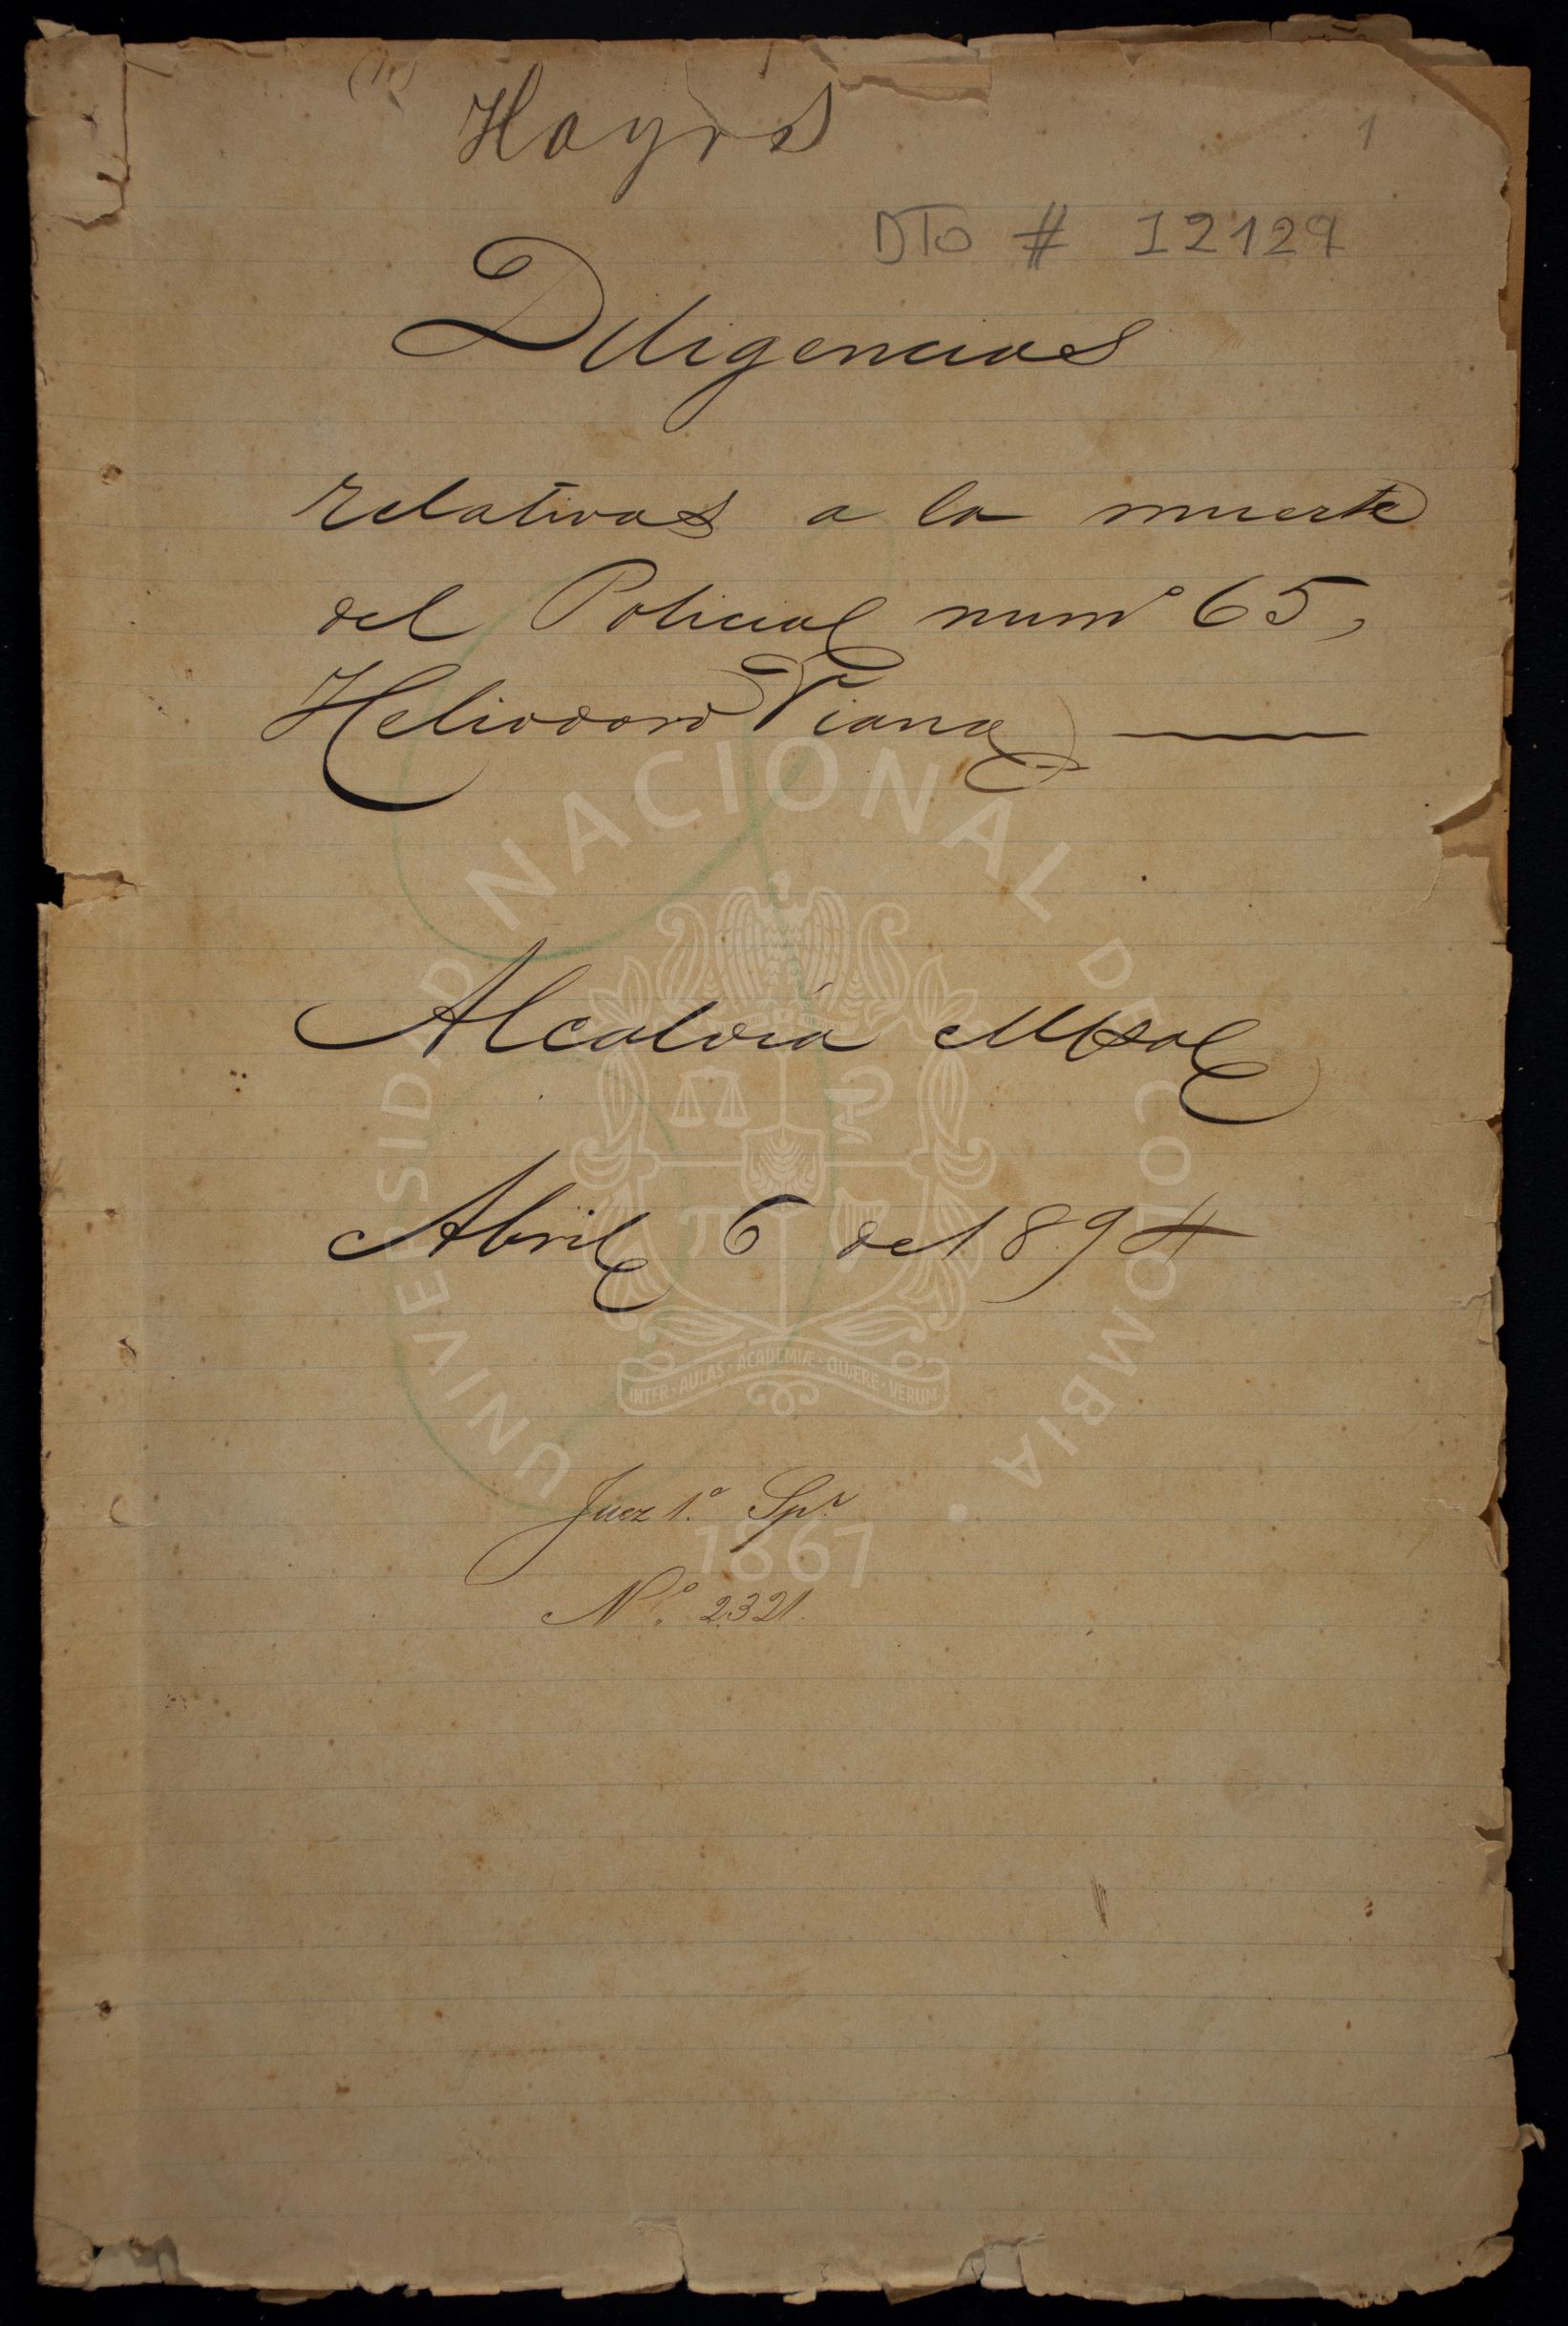 Hoyos
1
DTO # 12127
Diligencias
relativas a la muerte
del Policial numº 65,
Heliodoro Viana
Alcaldía Mpal
Abril 6 de 1894
Juez 1º. Spr.
Nº. 2321.
UNIVERSIDAD NACIONAL DE COLOMBIA
INTER · AULAS · ACADEMIÆ · QUÆRE · VERUM
1867